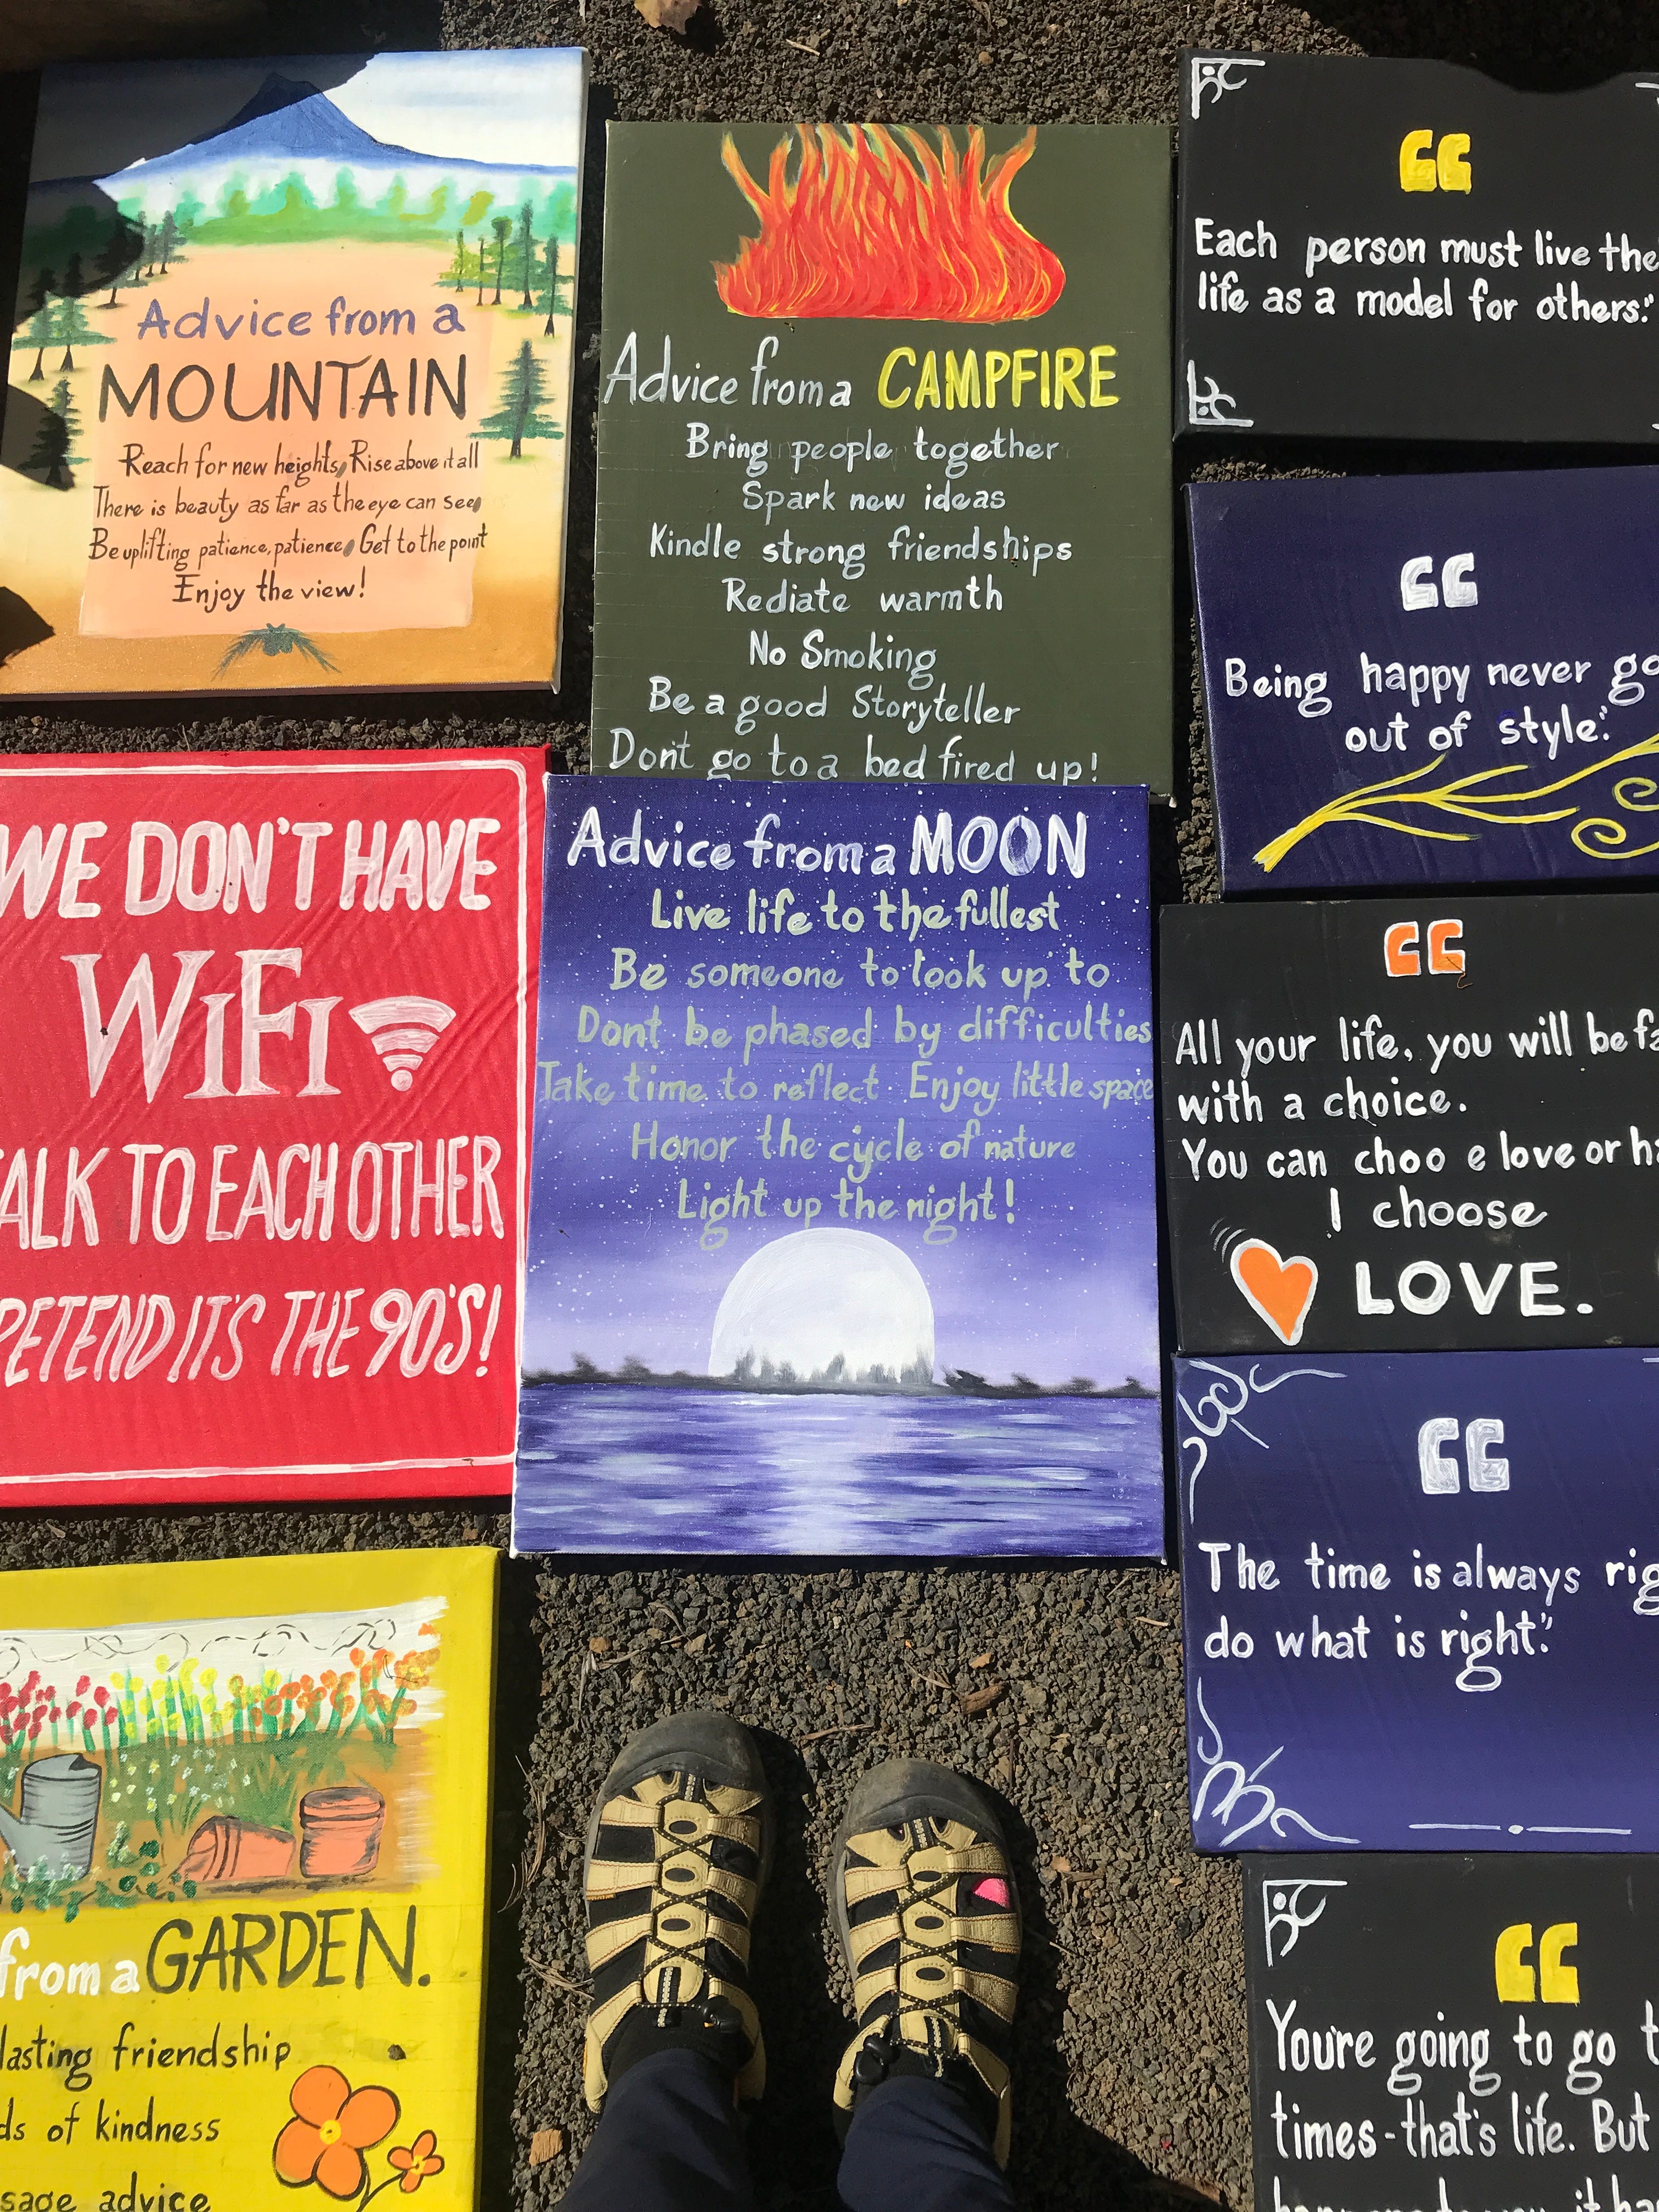 Advice from a
MOUNTAIN
Reach for new heights, Rise above it all
There is beauty as far as the eye can see,
Be uplifting patience, patience, Get to the point
Enjoy the view!
Advice from a CAMPFIRE
Bring people together
Spark new ideas
Kindle strong friendships
Rediate warmth
No Smoking
Be a good Storyteller
Dont go to a bed fired up!
“
Each person must live the
life as a model for others."
“
Being happy never go
out of style."
WE DON'T HAVE
WIFI
TALK TO EACH OTHER
PRETEND IT'S THE 90'S!
Advice from a MOON
Live life to the fullest
Be someone to look up to
Dont be phased by difficulties
Take time to reflect Enjoy little space
Honor the cycle of nature
Light up the night!
“
All your life, you will be fa
with a choice.
You can choo e love or ha
I choose
LOVE.
“
The time is always rig
do what is right."
from a GARDEN.
lasting friendship
ds of kindness
sage advice
“
You're going to go t
times - that's life. But